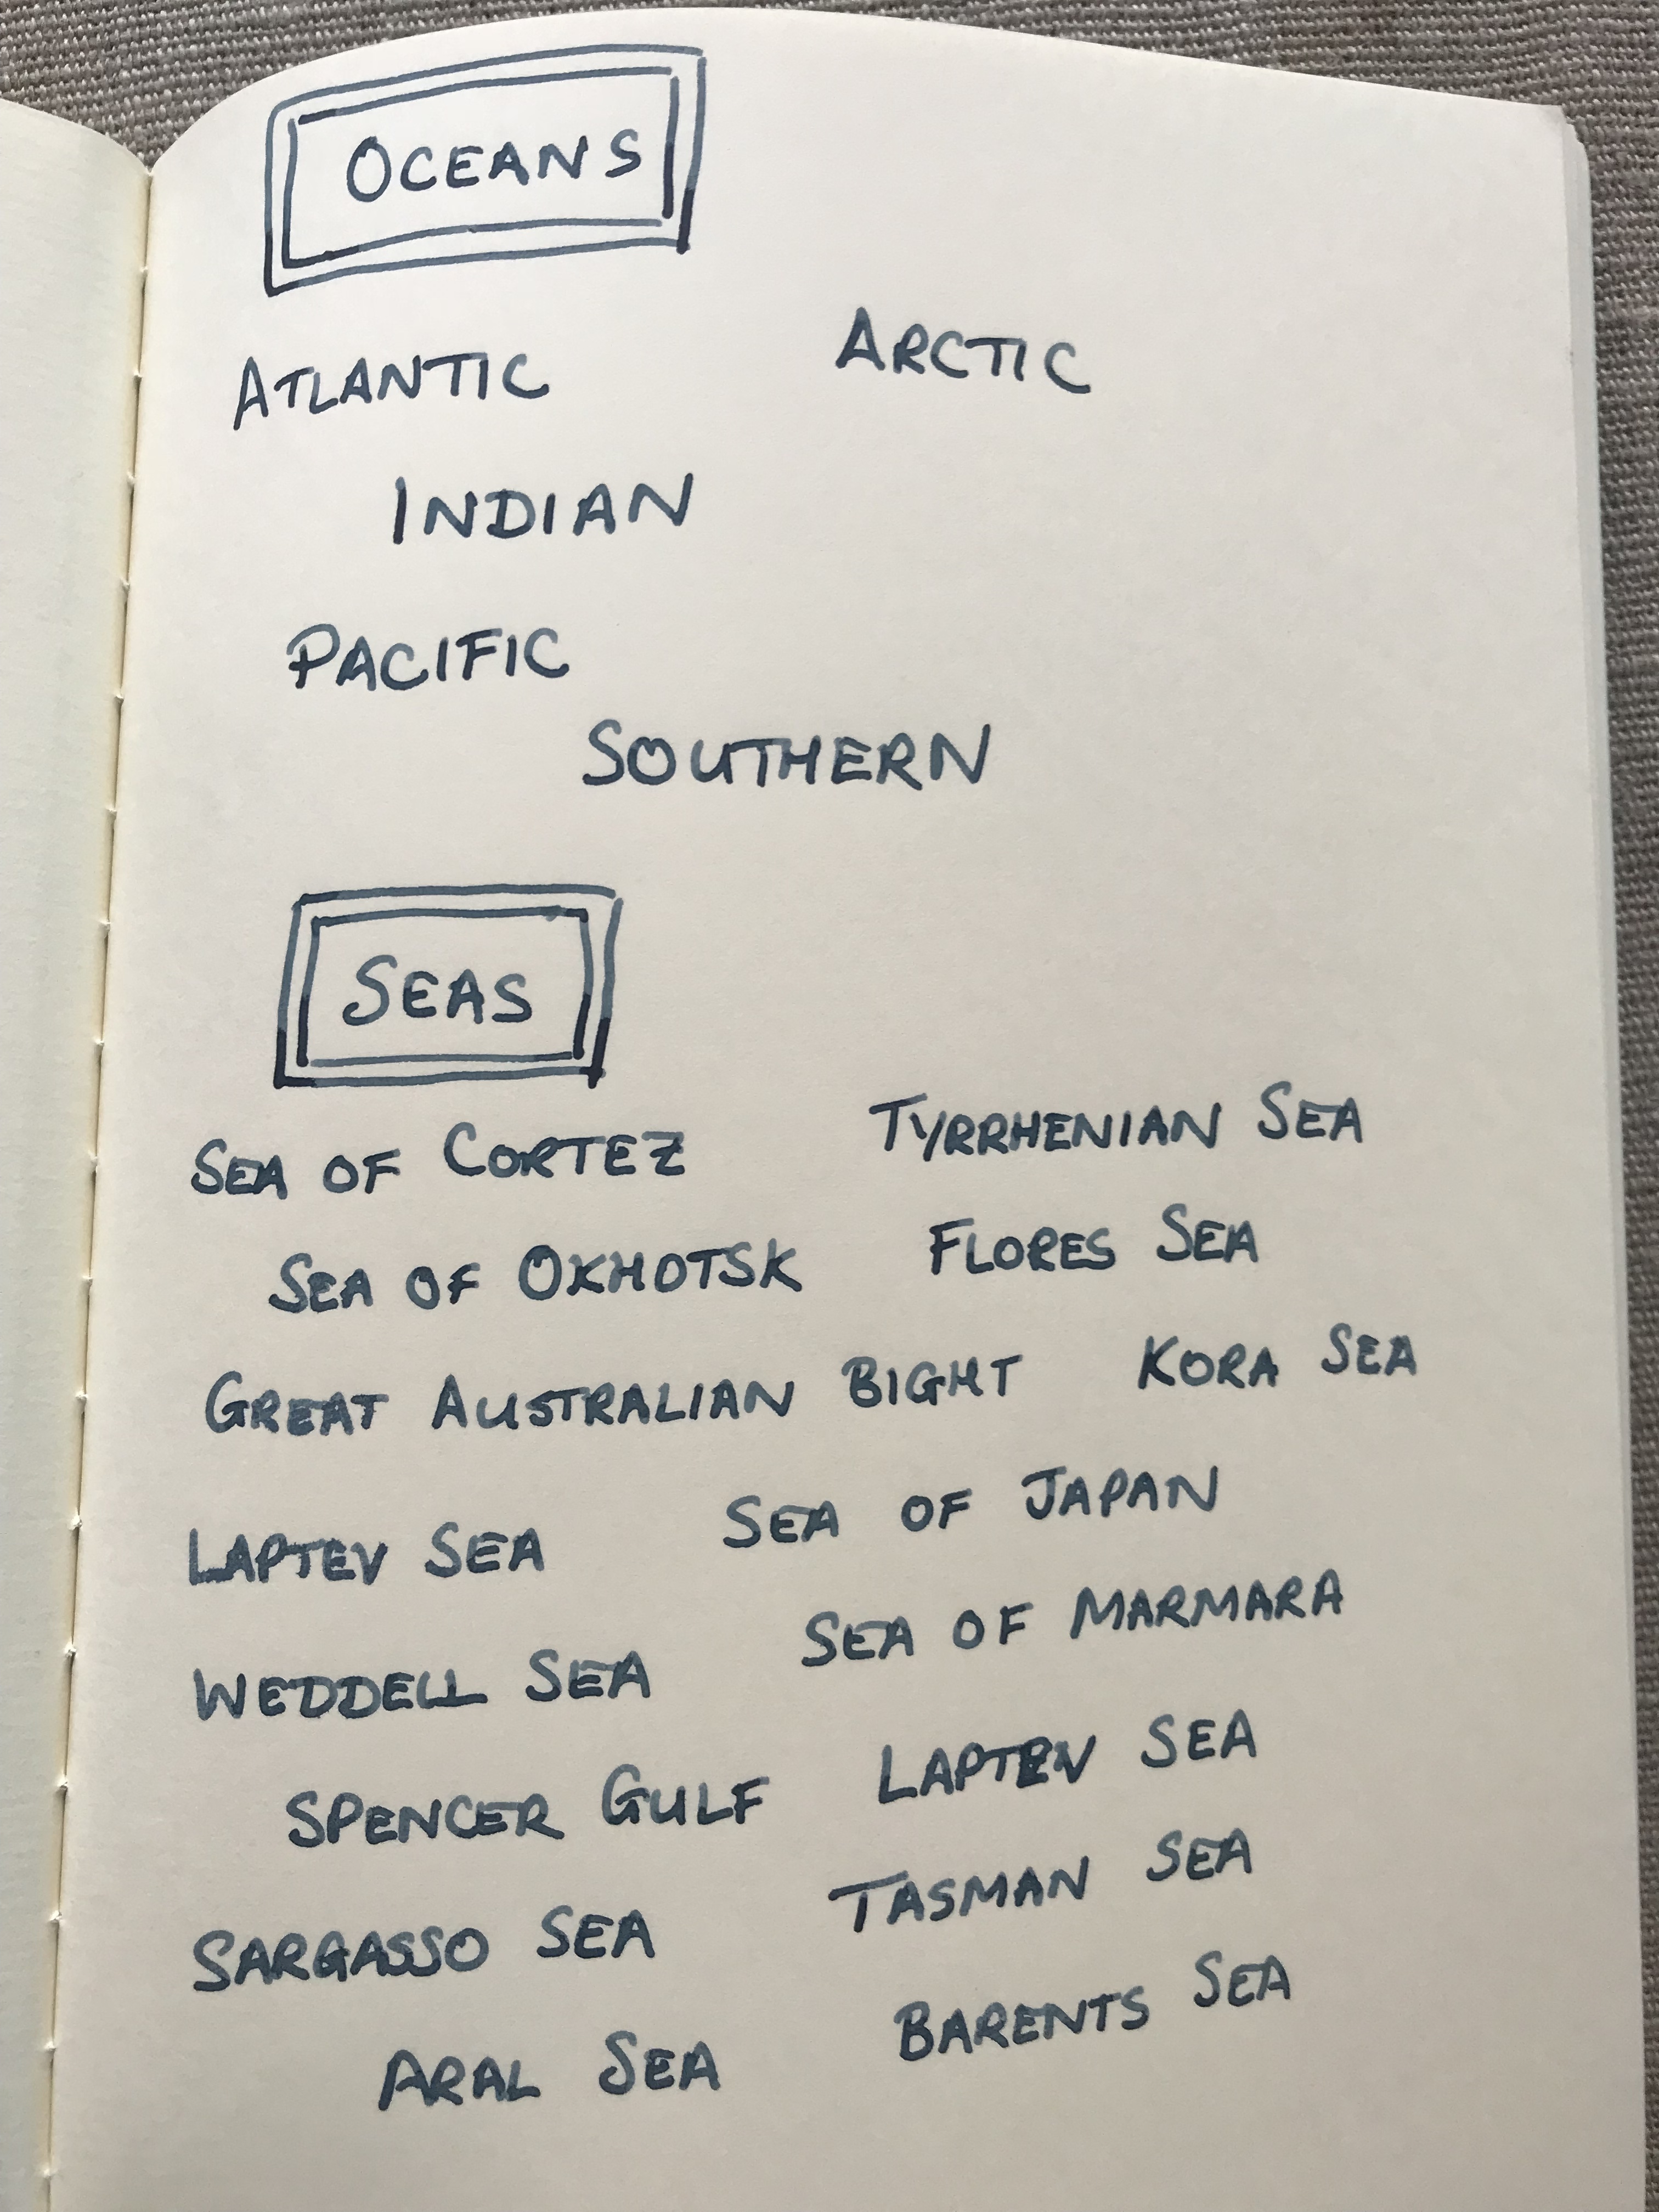 OCEANS
ATLANTIC ARCTIC
INDIAN
PACIFIC
SOUTHERN
SEAS
SEA OF CORTEZ TYRRHENIAN SEA
SEA OF OKHOTSK FLORES SEA
GREAT AUSTRALIAN BIGHT KORA SEA
LAPTEV SEA SEA OF JAPAN
WEDDELL SEA SEA OF MARMARA
SPENCER GULF LAPTEV SEA
SARGASSO SEA TASMAN SEA
ARAL SEA BARENTS SEA